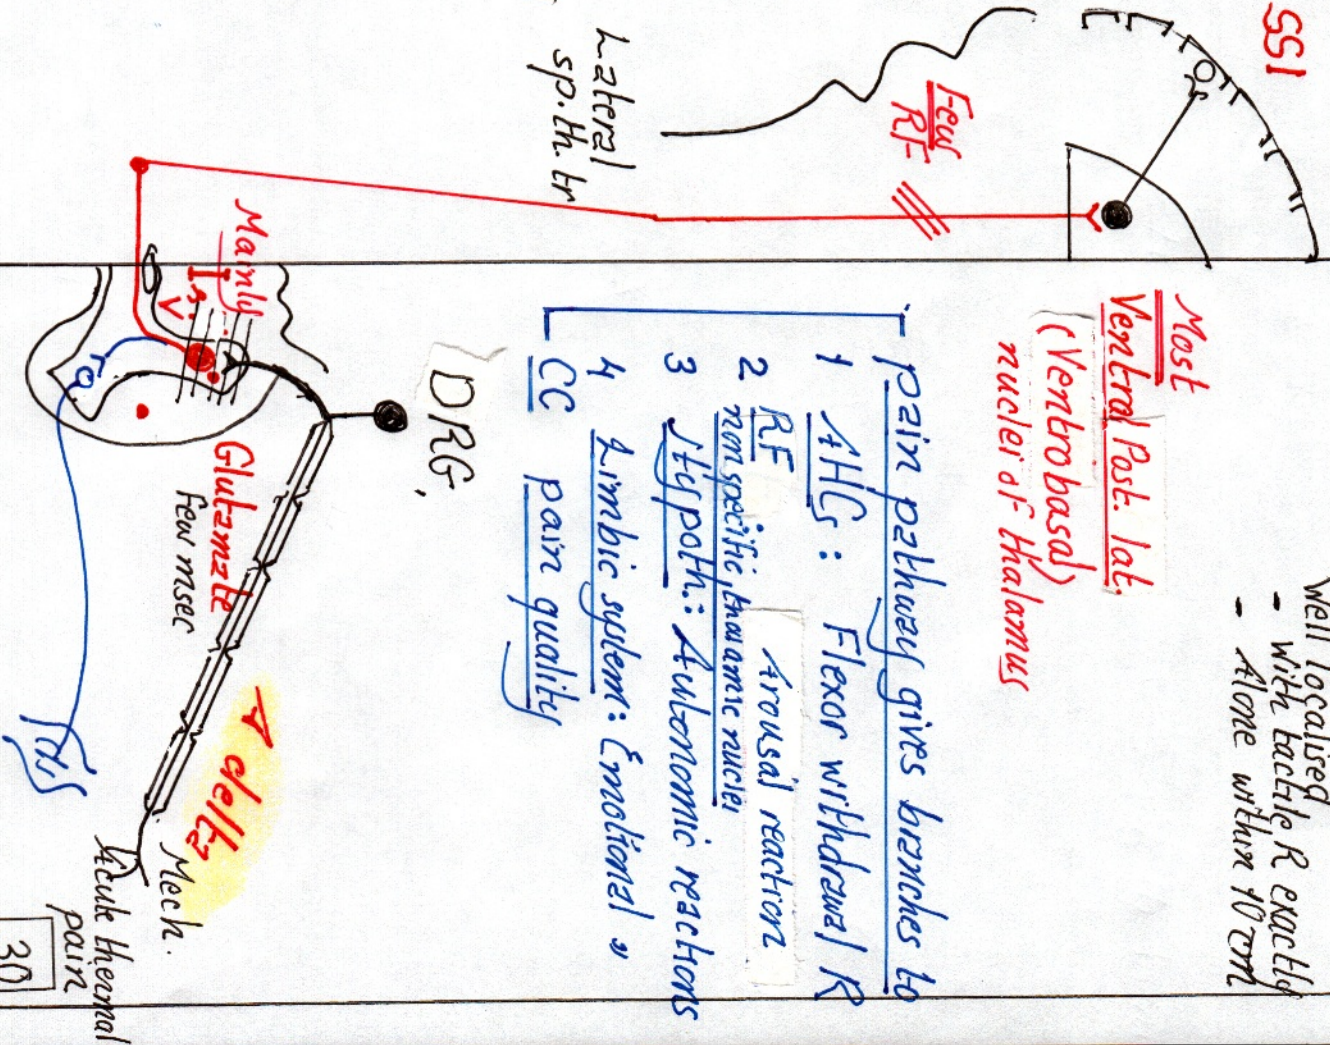 SSI
Well localised
- With tactile R exactly
- Alone within 10 cm
Most
Ventral Post. lat.
(Ventrobasal)
nuclei of thalamus
Few
RF
pain pathway gives branches to
1 AHCs: Flexor withdrawal R
2 RF Arousal reaction
non specific thalamic nuclei
3 Hypoth.: Autonomic reactions
4 Limbic system: Emotional "
CC pain quality
Lateral
sp. th. tr
DRG.
Mainly
I
V
Glutamate
few msec
A delta
Mech.
Acute thermal
pain
30